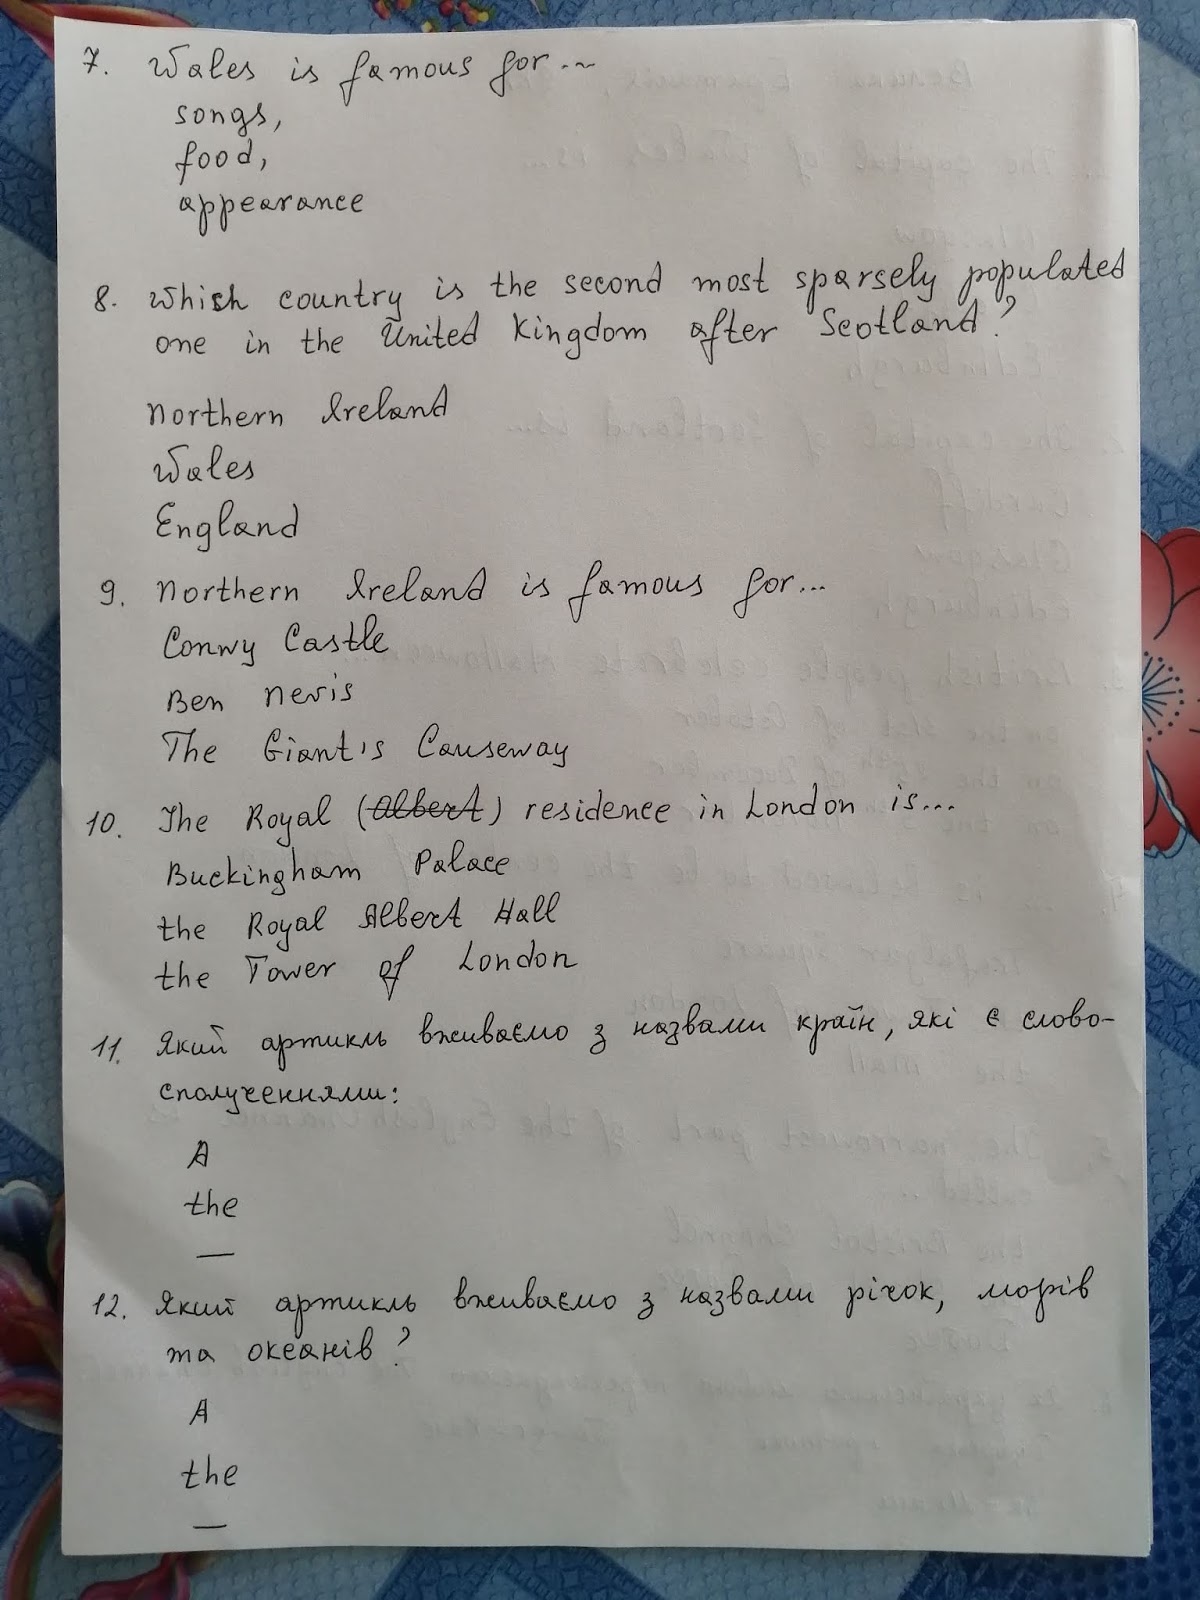 7. Wales is famous for...
songs,
food,
appearance
8. Which country is the second most sparsely populated
one in the United Kingdom after Scotland?
Northern Ireland
Wales
England
9. Northern Ireland is famous for...
Conwy Castle
Ben Nevis
The Giant's Causeway
10. The Royal (Albert) residence in London is...
Buckingham Palace
the Royal Albert Hall
the Tower of London
11. Який артикль вживаємо з назвами країн, які є слово-
сполученнями:
A
the
—
12. Який артикль вживаємо з назвами річок, морів
та океанів?
A
the
—